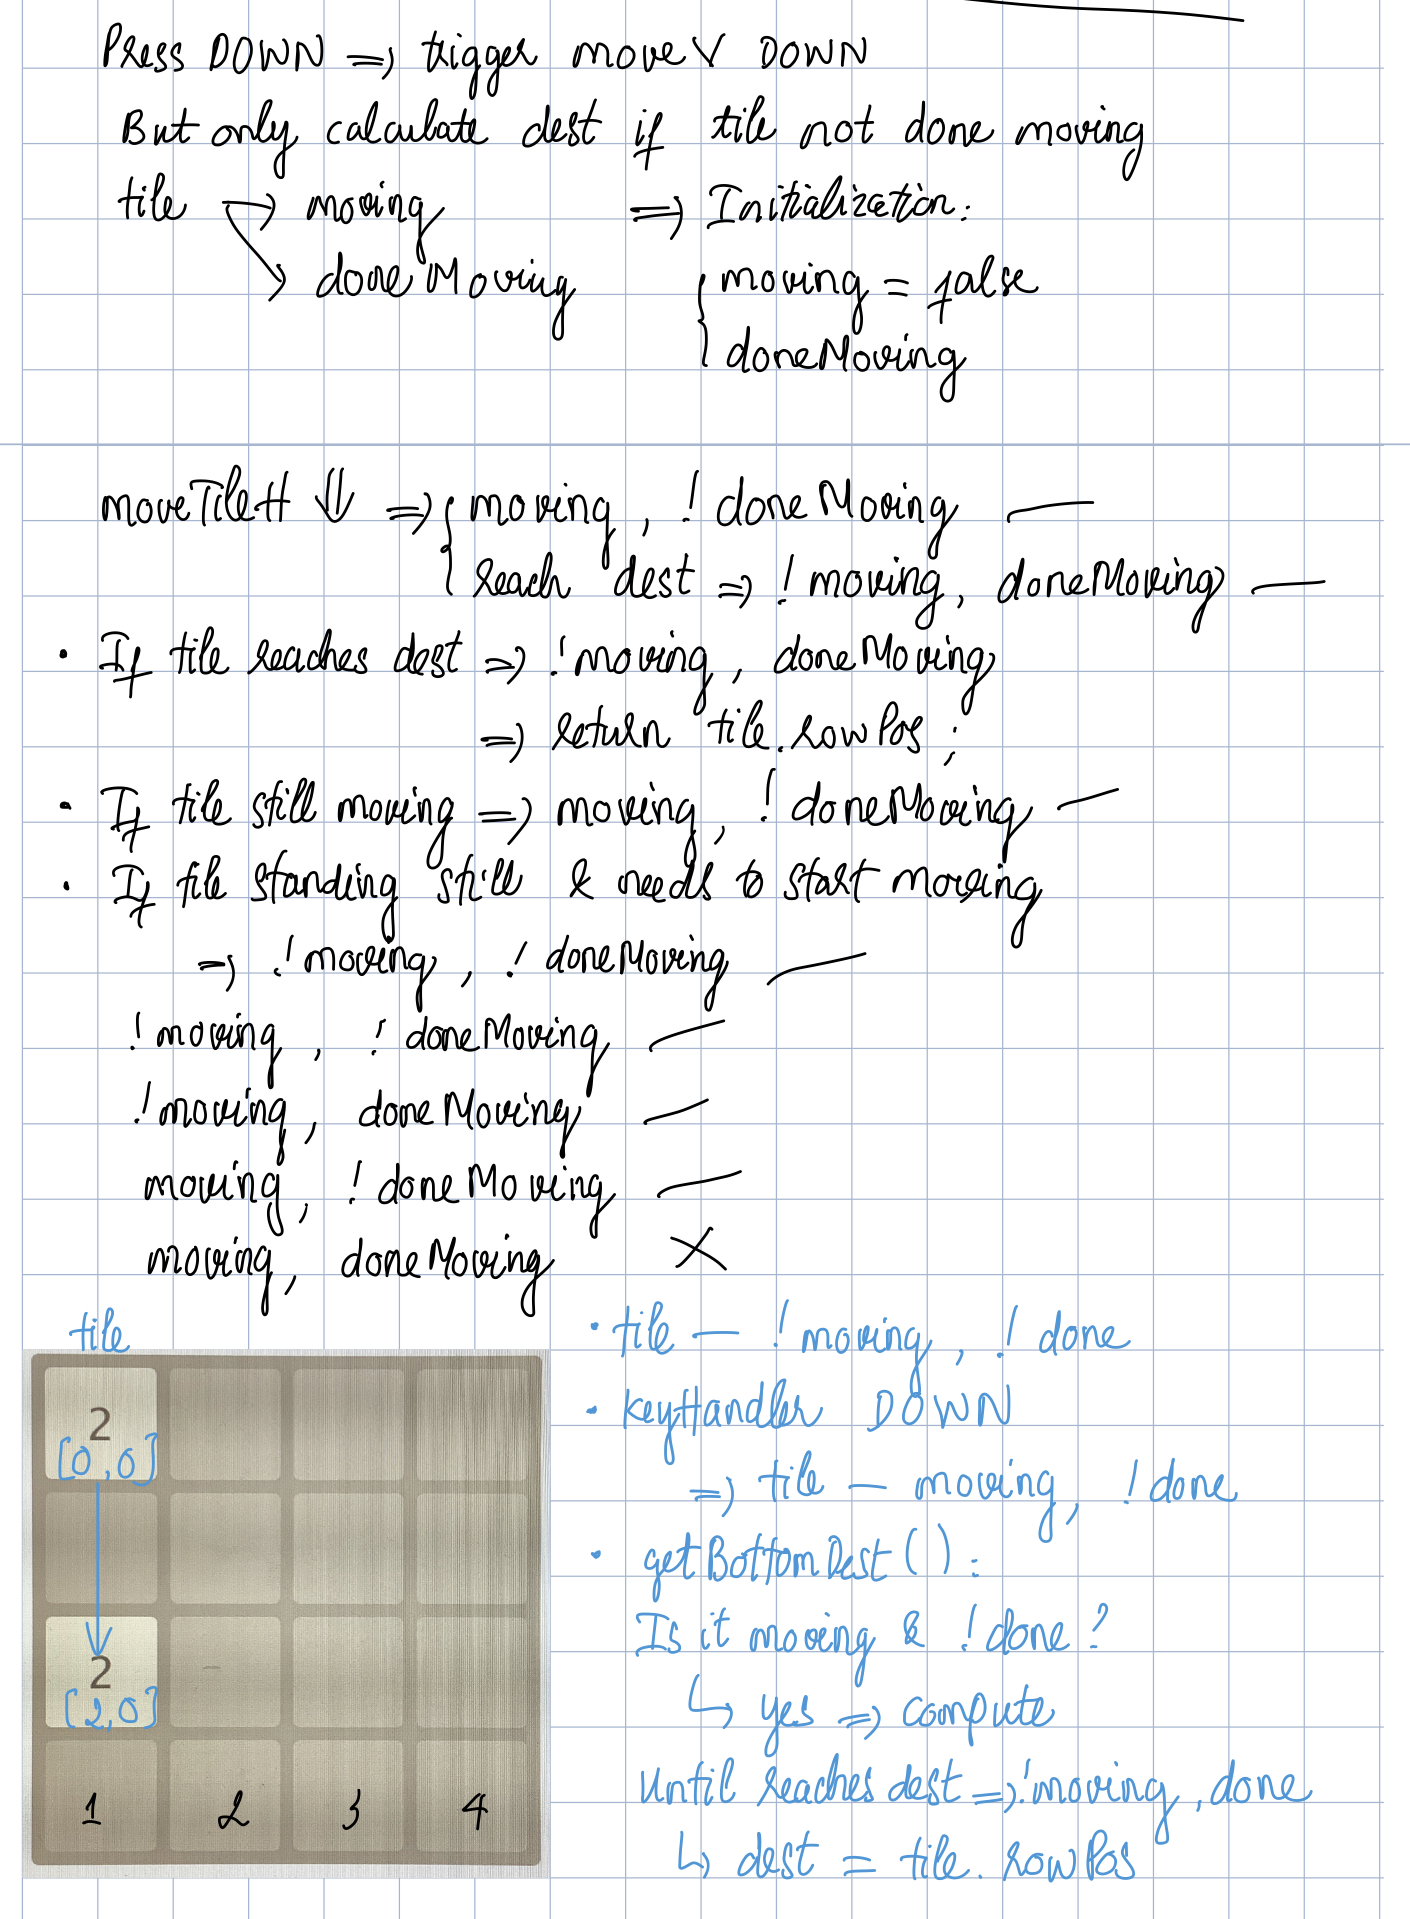 Press DOWN => trigger moveV DOWN
But only calculate dest if tile not done moving
tile -> moving => Initialization:
-> doneMoving { moving = false
doneMoving
moveTileH ⇓ => { moving, ! doneMoving —
reach dest => ! moving, doneMoving —
• If tile reaches dest => !moving, doneMoving
=> return tile.rowPos;
• If tile still moving => moving, ! doneMoving —
• If tile standing still & needs to start moving
=> !moving, ! doneMoving —
!moving, ! doneMoving —
!moving, doneMoving —
moving, ! doneMoving —
moving, doneMoving X
tile
2
[0,0]
2
[2,0]
1 2 3 4
• tile — !moving, ! done
• keyHandler DOWN
=> tile — moving, ! done
• getBottomDest():
Is it moving & ! done?
↳ yes => compute
Until reaches dest => !moving, done
↳ dest = tile.rowPos